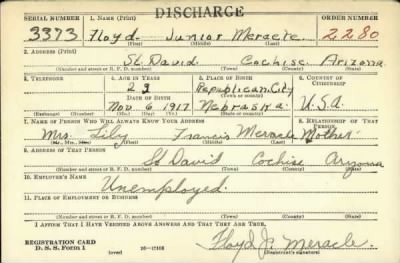 DISCHARGE
SERIAL NUMBER 1. NAME (Print) ORDER NUMBER
3373 Floyd Junior Meracle 2280
(First) (Middle) (Last)
2. ADDRESS (Print)
St. David Cochise Arizona
(Number and street or R. F. D. number) (Town) (County) (State)
3. TELEPHONE 4. AGE IN YEARS 5. PLACE OF BIRTH 6. COUNTRY OF CITIZENSHIP
23 Republican City
DATE OF BIRTH (Town or county)
Nov 6 1917 Nebraska. U.S.A.
(Exchange) (Number) (Mo.) (Day) (Yr.) (State or country)
7. NAME OF PERSON WHO WILL ALWAYS KNOW YOUR ADDRESS 8. RELATIONSHIP OF THAT PERSON
Mrs. Lily Francis Meracle Mother
(Mr., Mrs., Miss) (First) (Middle) (Last)
9. ADDRESS OF THAT PERSON
St David Cochise Arizona
(Number and street or R. F. D. number) (Town) (County) (State)
10. EMPLOYER'S NAME
Unemployed.
11. PLACE OF EMPLOYMENT OR BUSINESS
(Number and street or R. F. D. number) (Town) (County) (State)
I AFFIRM THAT I HAVE VERIFIED ABOVE ANSWERS AND THAT THEY ARE TRUE.
REGISTRATION CARD
D. S. S. Form 1 (over) 16-17105 Floyd J. Meracle.
(Registrant's signature)